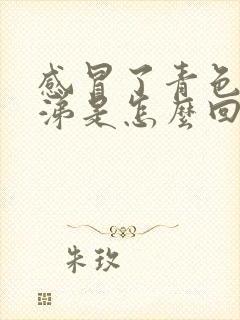 感冒了青色
涕是怎麼回
朱玫